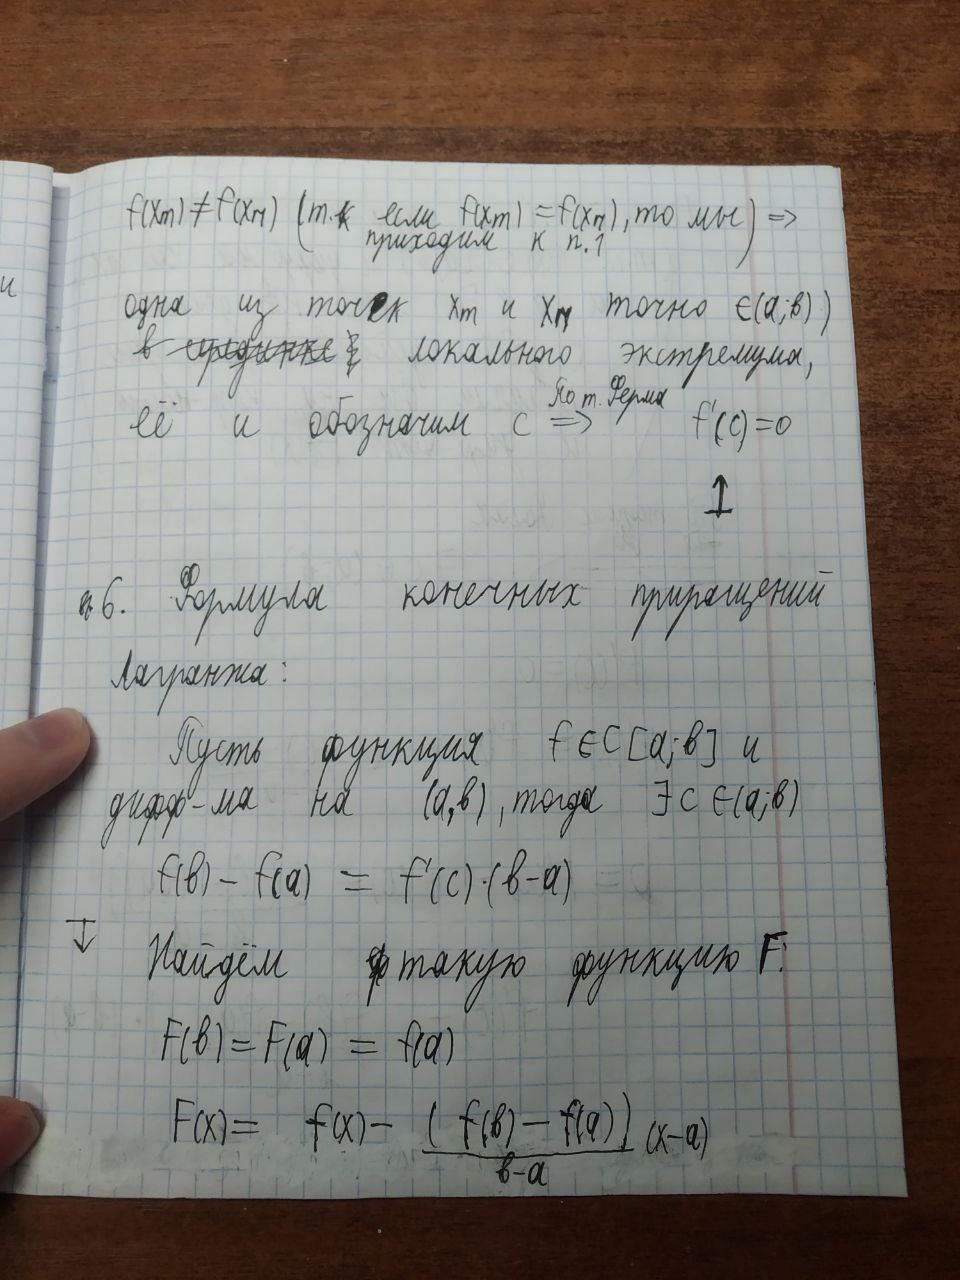 и
f(xm) ≠ f(xм) (т.к если f(xm) = f(xм), то мы приходим к п.1) =>
одна из точек xm и xм точно ∈(а;в))
локального экстремума,
её и обозначим с =>По т. Ферма f'(c)=0
↥
п6. Формула конечных приращений
Лагранжа:
Пусть функция f ∈ C [а;в] и
дифф-ма на (а,в), тогда ∃ с ∈(а;в)
f(в) - f(а) = f'(c)·(в-а)
↧ Найдём такую функцию F:
F(в) = F(а) = f(а)
F(x) = f(x) - (f(в) - f(а))/(в-а) (x-а)